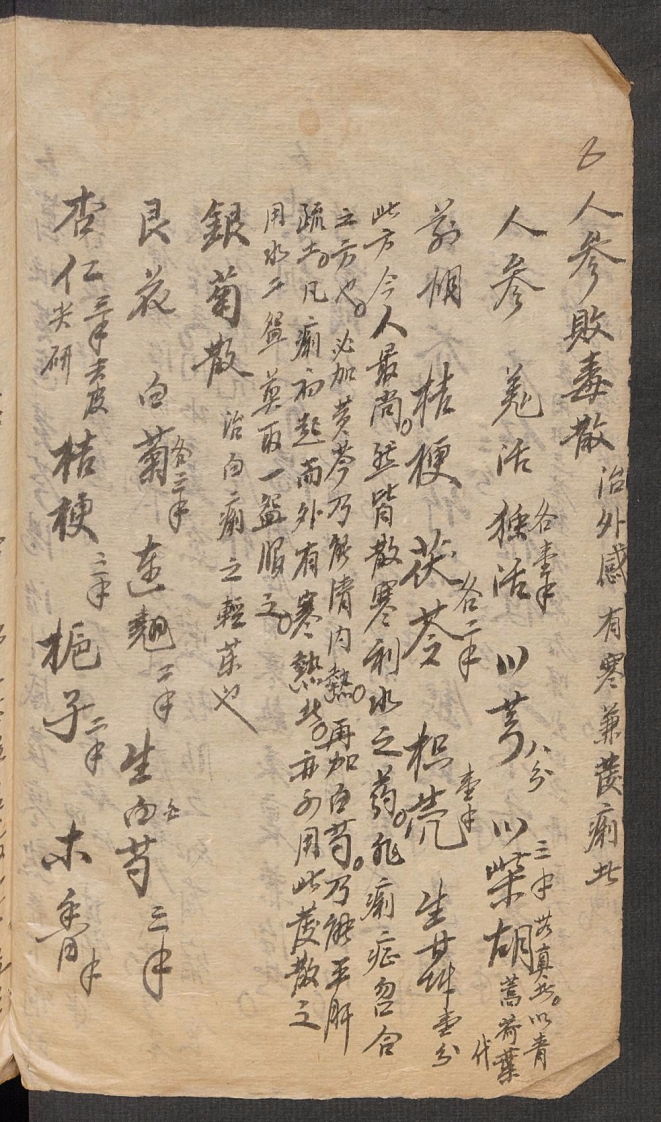 人參敗毒散 治外感有寒兼發痢者
人參 羌活 獨活各壹牛 川芎八分 川柴胡三牛 若真者。以青蒿荷葉代
前胡 桔梗 茯苓各二牛 枳壳壹牛 生甘艸壹分
此方今人最尚。然皆散寒利水之药。非痢症罗合
之方也。必加黄芩乃能清内熱。再加白芍。乃能平肝
疏土。凡痢初起而外有寒熱者。亦可用此發散之
用水二盌煎取一盌服之。
銀菊散 治白痢之輕菜也
艮花 白菊各三牛 連翹二牛 生白芍三牛
杏仁三牛去皮尖研 桔梗二牛 栀子二牛 木香牛